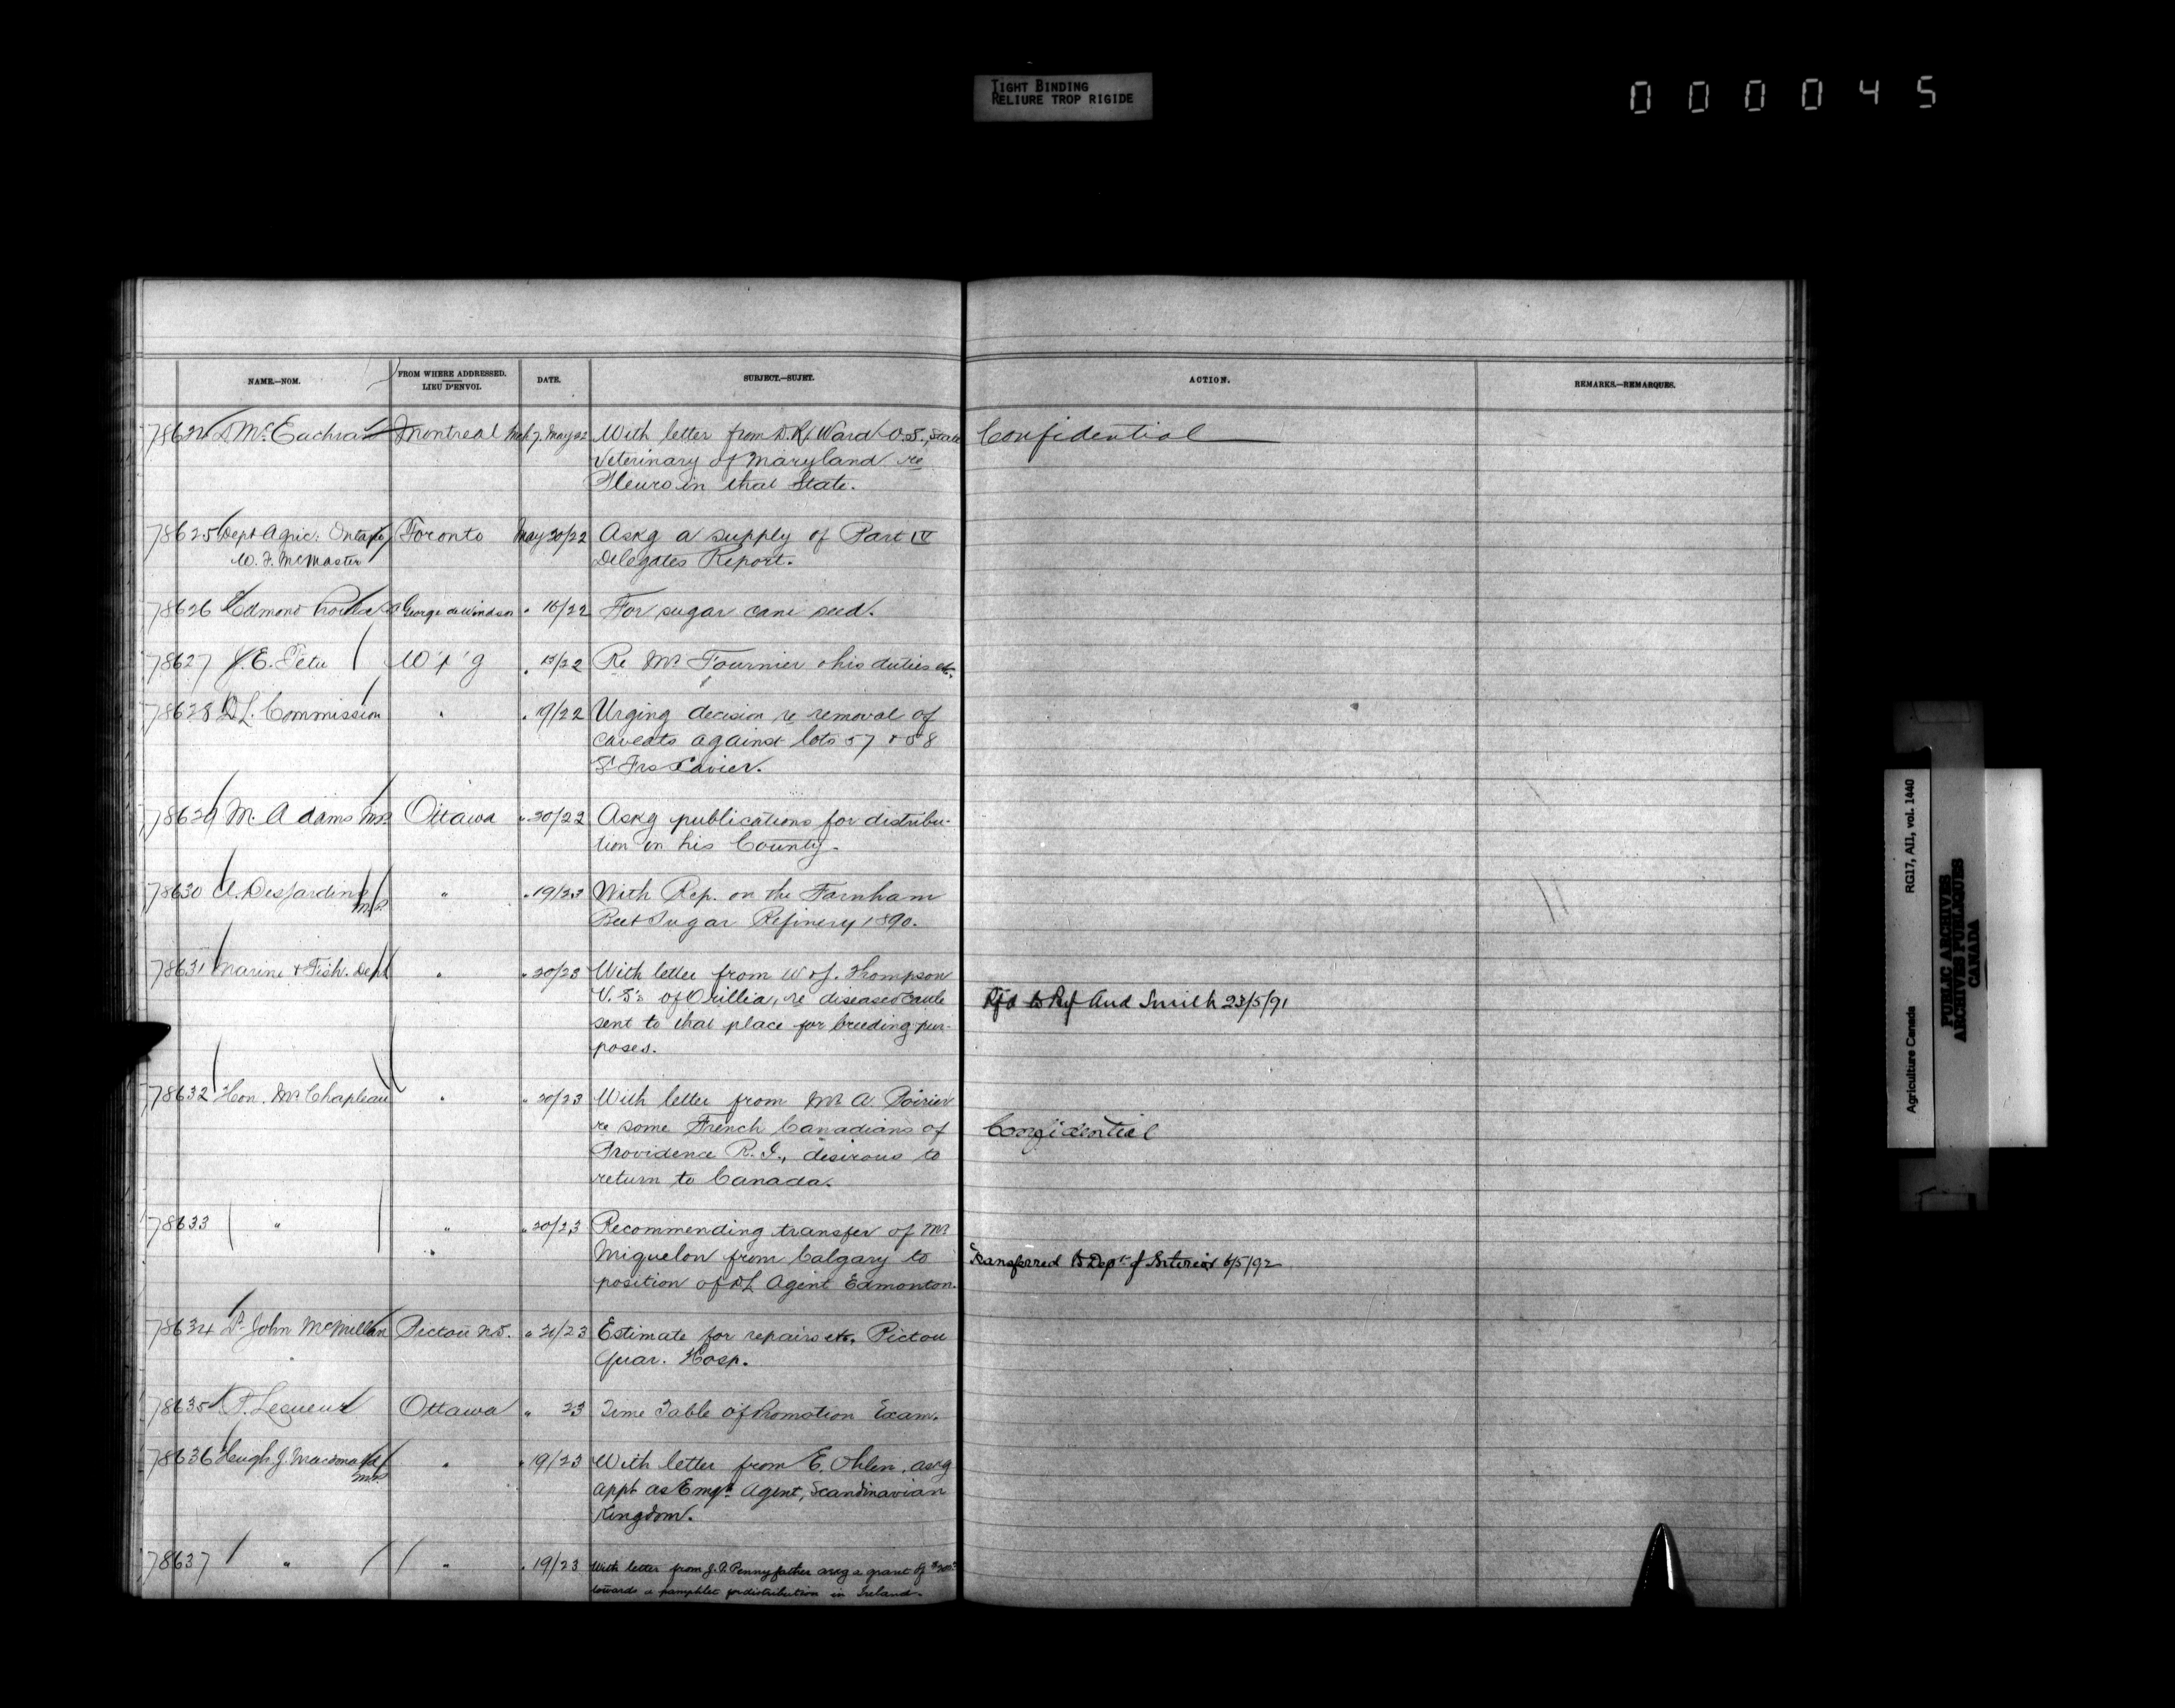 TIGHT BINDING
RELIURE TROP RIGIDE
000045
NAME.—NOM.
FROM WHERE ADDRESSED.
LIEU D'ENVOI.
DATE.
SUBJECT.—SUJET.
ACTION.
REMARKS.—REMARQUES.
78624 D McEachran Montreal May 22 With letter from D. R. Ward V.S., State Confidential
Veterinary of Maryland re
Pleuro in that State.
78625 Dept Agric. Ontario Toronto May 20/22 Askg a supply of Part IV
W. F. McMaster Delegates Report.
78626 Edmond George de Windsor " 16/22 For sugar cane seed.
78627 J. E. Tetu W'p'g " 15/22 Re Mr Fournier & his duties etc.
78628 D.L. Commission " " 19/22 Urging decision re removal of
caveats against lots 57 & 58
St Frs Xavier.
78629 M. Adams M.P. Ottawa " 20/22 Askg publications for distribu-
tion in his County.
78630 A. Desjardins " " 19/23 With Rep. on the Farnham
M.P. Beet Sugar Refinery 1890.
78631 Marine & Fish. Dept " " 20/23 With letter from W & J. Thompson
V.S's of Orillia, re diseased cattle Rfd to Prof And Smith 23/5/91
sent to that place for breeding pur-
poses.
78632 Hon. Mr Chapleau " " 20/23 With letter from Mr A. Poirier
re some French Canadians of Confidential
Providence R.I., desirous to
return to Canada.
78633 " " " 20/23 Recommending transfer of Mr
Miquelon from Calgary to Transferred to Dept of Interior 6/5/92
position of DL Agent Edmonton.
78634 Dr John McMillan Pictou N.S. " 21/23 Estimate for repairs etc, Pictou
Quar. Hosp.
78635 P. Lesueur Ottawa " 23 Time Table of Promotion Exam.
78636 Hugh J. Macdonald " " 19/23 With letter from E. Ohlen, askg
M.P. appt as Emgt Agent, Scandinavian
Kingdom.
78637 " " " 19/23 With letter from J. P. Pennyfather askg a grant of
towards a pamphlet for distribution in Ireland.
Agriculture Canada RG17, AII, vol. 1440
PUBLIC ARCHIVES
ARCHIVES PUBLIQUES
CANADA